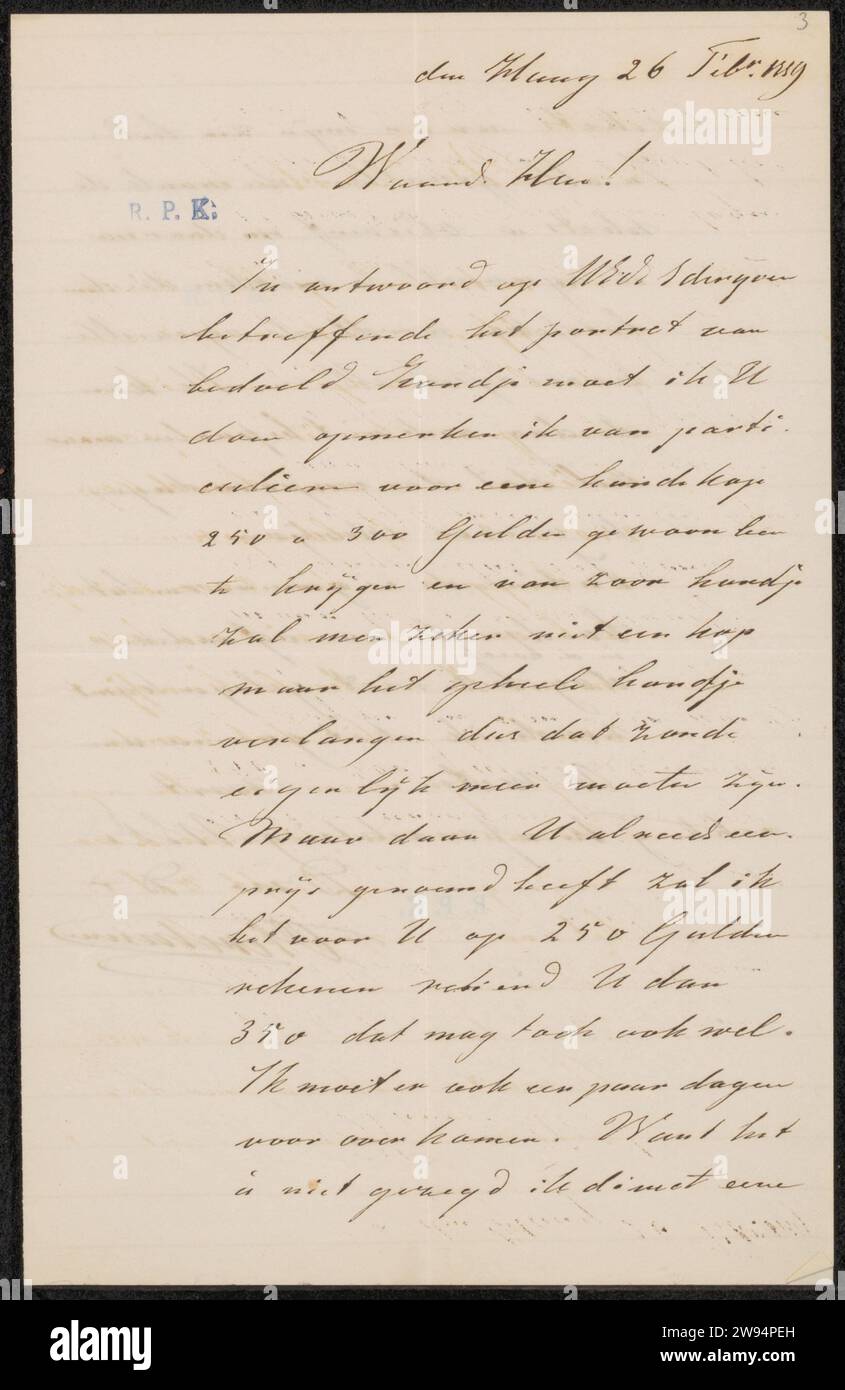 3
den Haag 26 Febr. 1889
Waarde Heer!
R. P. K.
In antwoord op UEd schrijven
betreffende het portret van
bedoeld hondje moet ik U
doen opmerken ik van parti-
culieren voor eene hondekop
250 a 300 Gulden gewoon ben
te krijgen en van zoon hondje
zal men zeker niet een kop
maar het geheele hondje
verlangen dus dat zoude
eigenlijk meer moeten zijn.
Maar daar U alreeds een
prijs genoemd heeft zal ik
het voor U op 250 Gulden
rekenen U dan
350 dat mag toch ook wel.
Ik moet er ook een paar dagen
voor over komen. Want het
is niet gezegd ik direct eene
alamy
Image ID: 2W94PEH
www.alamy.com